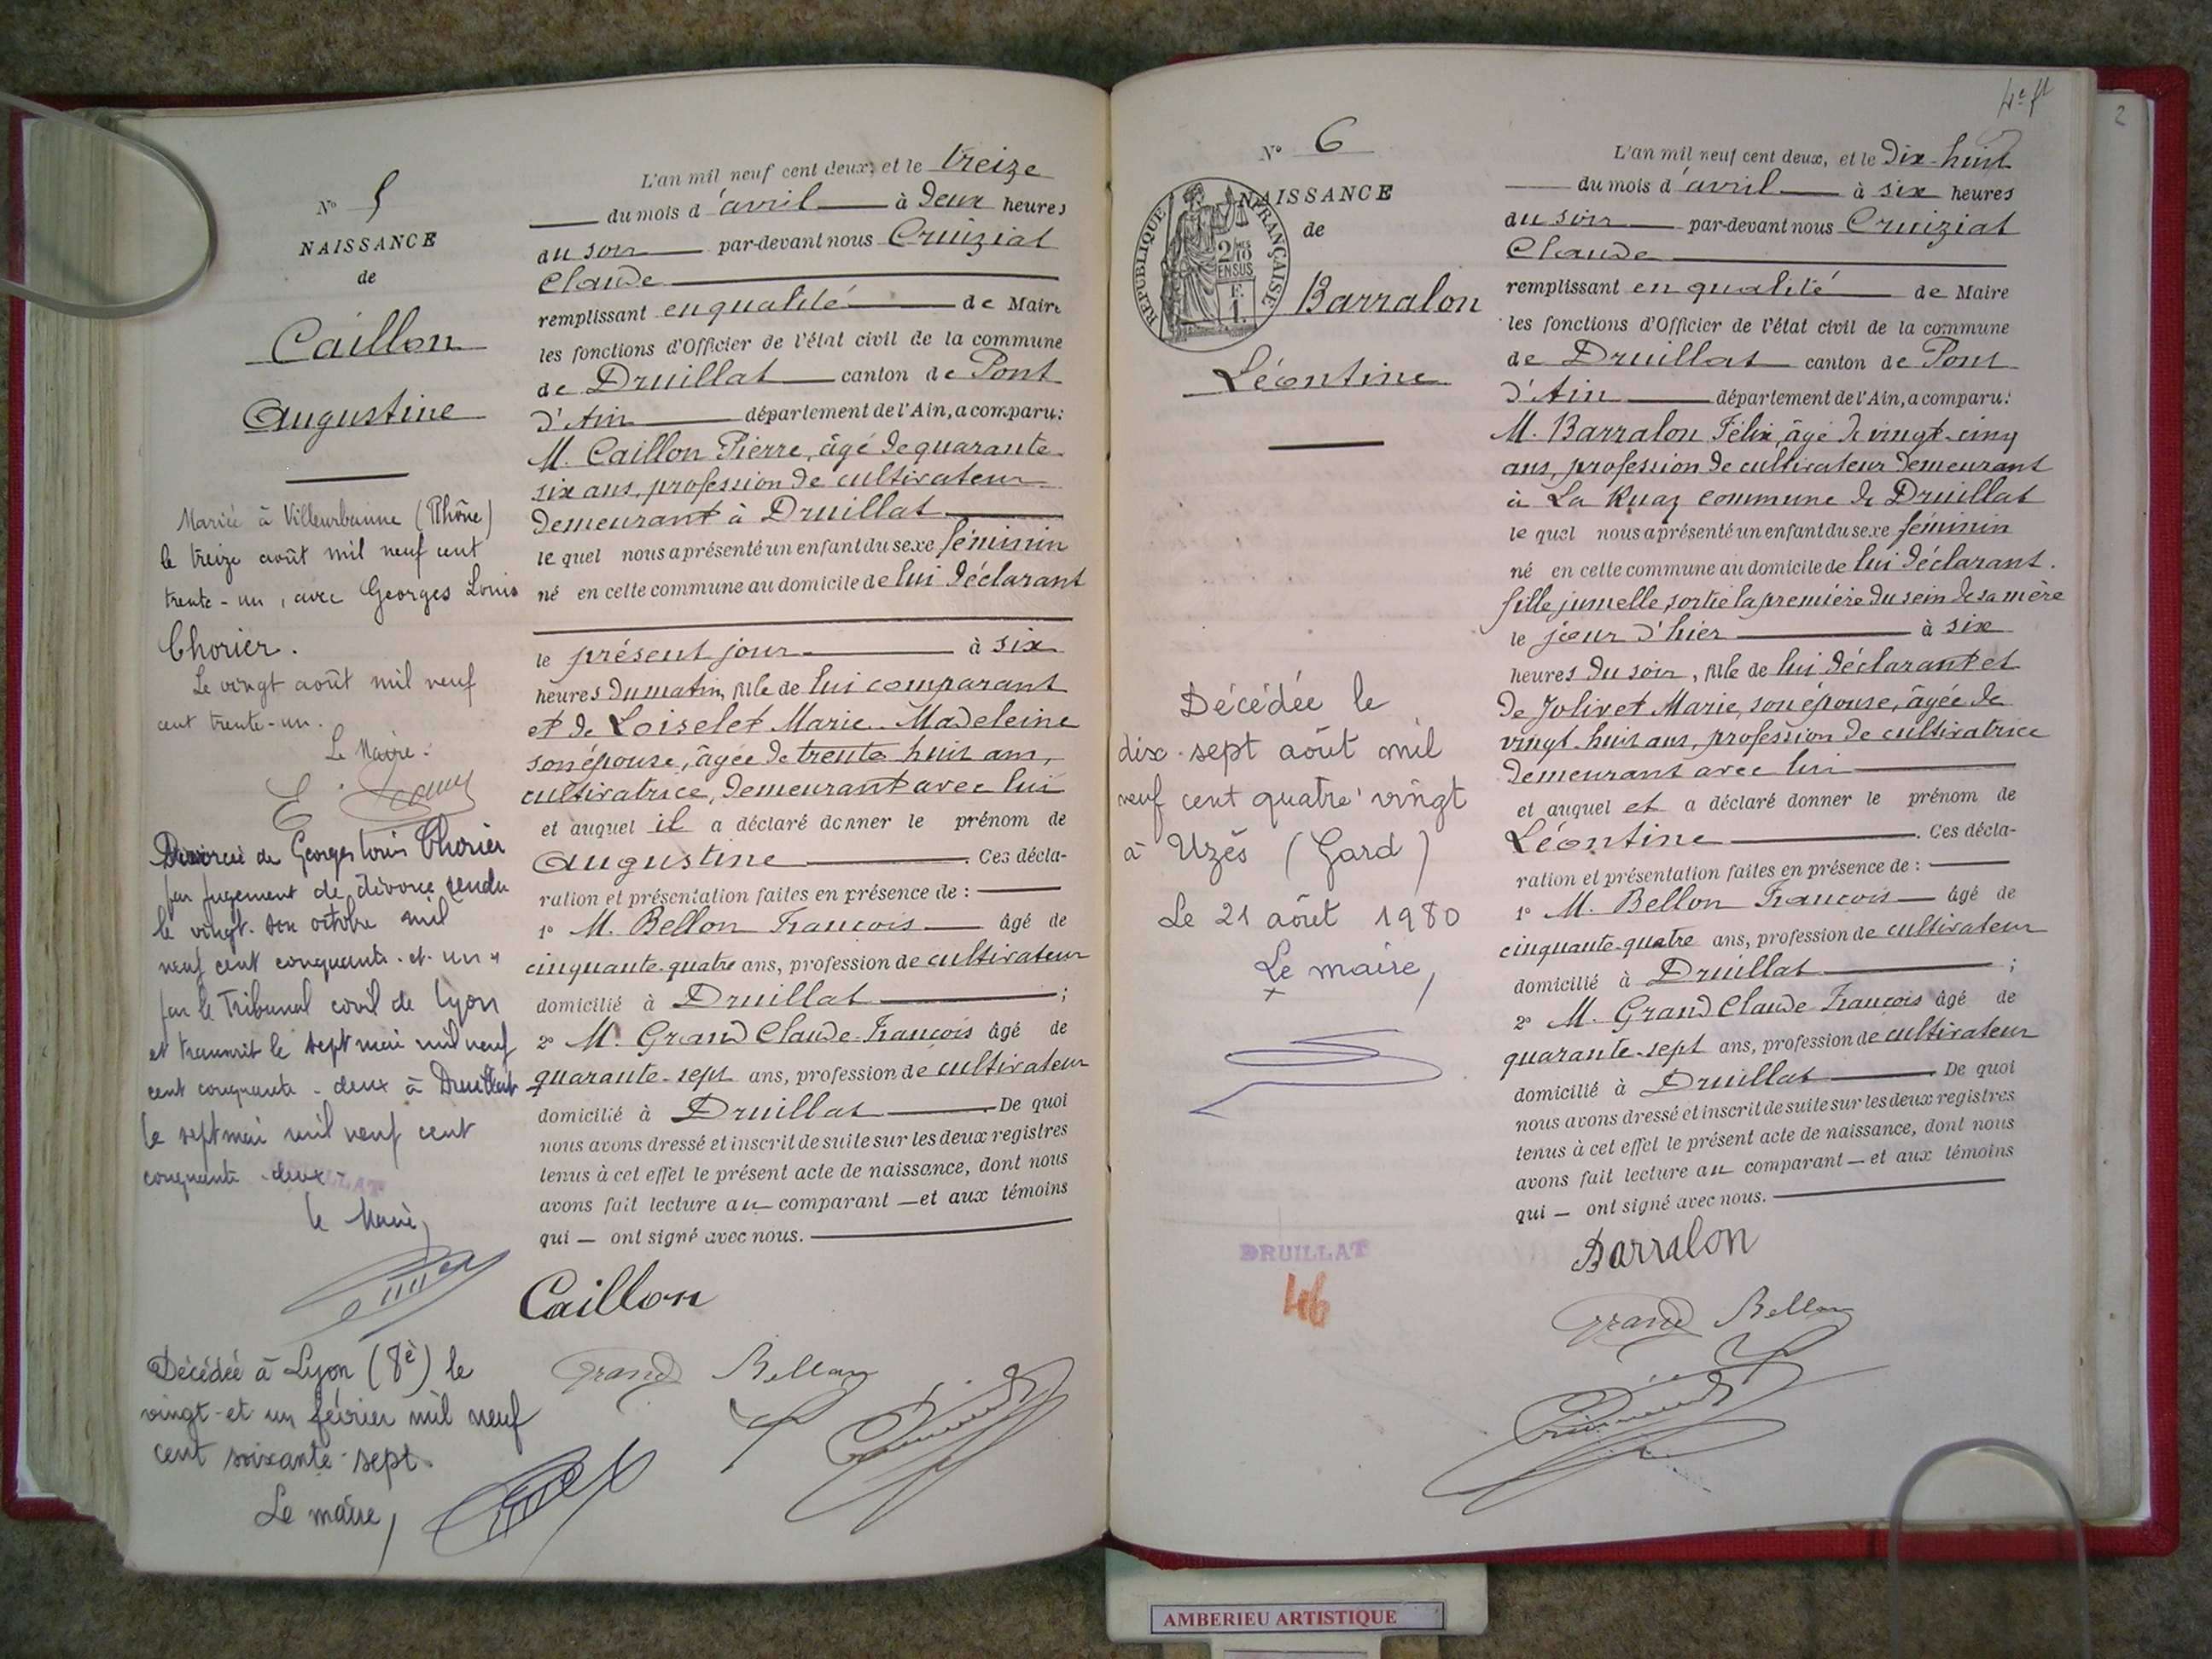 N° 5
NAISSANCE
de
Caillon
Augustine
Mariée à Villeurbanne (Rhône)
le treize août mil neuf cent
trente-un, avec Georges Louis
Chorier.
Le vingt août mil neuf
cent trente-un.
Le Maire.
Divorcée de Georges Louis Chorier
par jugement de divorce rendu
le vingt-six octobre mil
neuf cent cinquante-et-un
par le Tribunal civil de Lyon
et transcrit le sept mai mil neuf
cent cinquante-deux à Druillat
le sept mai mil neuf cent
cinquante-deux
le Maire,
Décédée à Lyon (8è) le
vingt-et un février mil neuf
cent soixante-sept.
Le maire,
L'an mil neuf cent deux, et le treize
du mois d'avril à deux heures
du soir par-devant nous Cruiziat
Claude
remplissant en qualité de Maire
les fonctions d'Officier de l'état civil de la commune
de Druillat canton de Pont
d'Ain département de l'Ain, a comparu:
M. Caillon Pierre, âgé de quarante-
six ans, profession de cultivateur
demeurant à Druillat
le quel nous a présenté un enfant du sexe féminin
né en cette commune au domicile de lui déclarant
le présent jour à six
heures du matin, fille de lui comparant
et de Loiselet Marie-Madeleine
son épouse, âgée de trente huit ans,
cultivatrice, demeurant avec lui
et auquel il a déclaré donner le prénom de
Augustine. Ces décla-
ration et présentation faites en présence de :
1° M. Bellon François âgé de
cinquante-quatre ans, profession de cultivateur
domicilié à Druillat ;
2° M. Grand Claude-François âgé de
quarante-sept ans, profession de cultivateur
domicilié à Druillat. De quoi
nous avons dressé et inscrit de suite sur les deux registres
tenus à cet effet le présent acte de naissance, dont nous
avons fait lecture au comparant et aux témoins
qui ont signé avec nous.
Caillon
Grand Bellon
4e ft
2
N° 6
RÉPUBLIQUE FRANÇAISE
2/10 EN SUS
NAISSANCE
de
Barralon
Léontine
Décédée le
dix-sept août mil
neuf cent quatre-vingt
à Uzès (Gard)
Le 21 août 1980
Le maire,
DRUILLAT
46
L'an mil neuf cent deux, et le dix-huit
du mois d'avril à six heures
du soir par-devant nous Cruiziat
Claude
remplissant en qualité de Maire
les fonctions d'Officier de l'état civil de la commune
de Druillat canton de Pont
d'Ain département de l'Ain, a comparu:
M. Barralon Félix, âgé de vingt-cinq
ans, profession de cultivateur demeurant
à La Ruaz commune de Druillat
le quel nous a présenté un enfant du sexe féminin
né en cette commune au domicile de lui déclarant.
fille jumelle, sortie la première du sein de sa mère
le jour d'hier à six
heures du soir, fille de lui déclarant et
de Jolivet Marie, son épouse, âgée de
vingt-huit ans, profession de cultivatrice
demeurant avec lui
et auquel et a déclaré donner le prénom de
Léontine. Ces décla-
ration et présentation faites en présence de :
1° M. Bellon François âgé de
cinquante-quatre ans, profession de cultivateur
domicilié à Druillat ;
2° M. Grand Claude-François âgé de
quarante-sept ans, profession de cultivateur
domicilié à Druillat. De quoi
nous avons dressé et inscrit de suite sur les deux registres
tenus à cet effet le présent acte de naissance, dont nous
avons fait lecture au comparant et aux témoins
qui ont signé avec nous.
Barralon
Grand Bellon
AMBERIEU ARTISTIQUE